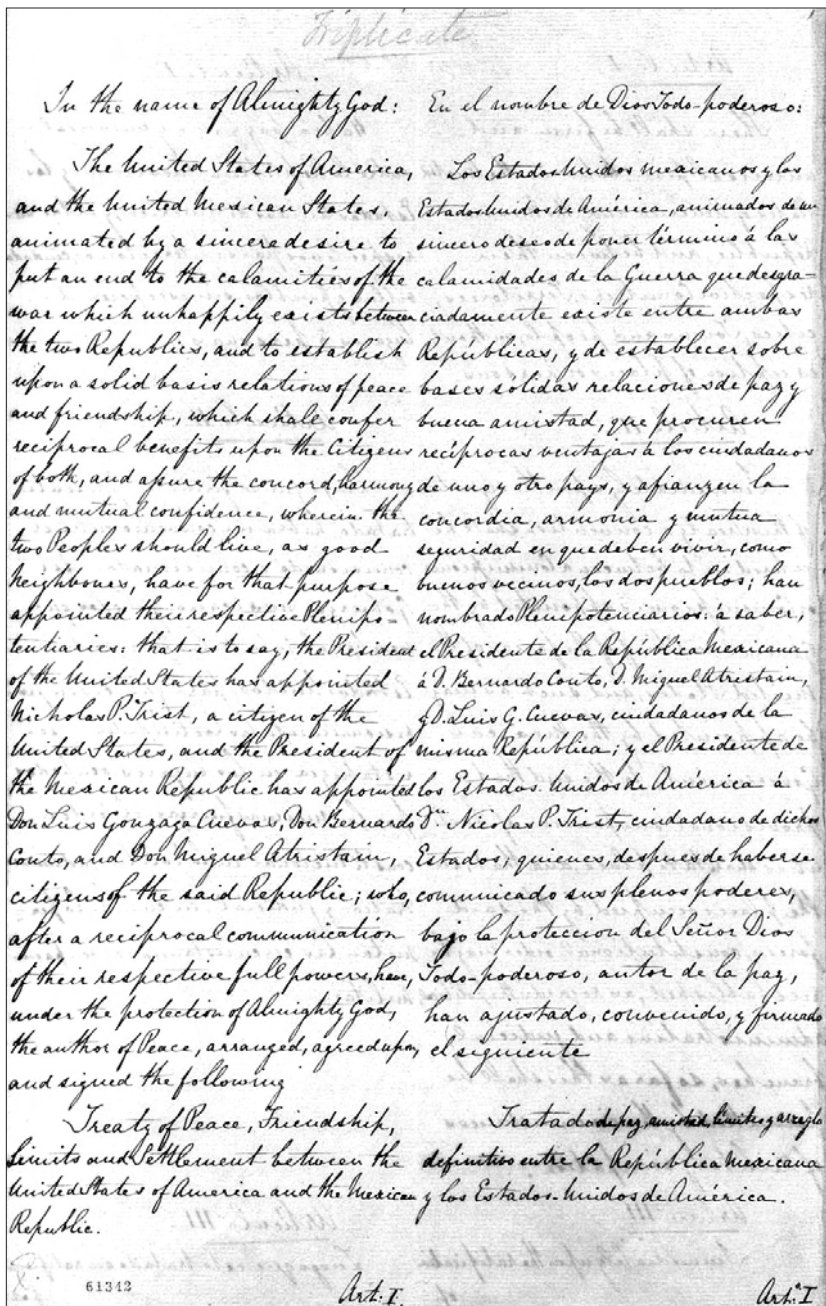 Triplicate
In the name of Almighty God:
The United States of America,
and the United Mexican States,
animated by a sincere desire to
put an end to the calamities of the
war which unhappily exists between
the two Republics, and to establish
upon a solid basis relations of peace
and friendship, which shall confer
reciprocal benefits upon the Citizens
of both, and assure the concord, harmony
and mutual confidence, wherein the
two Peoples should live, as good
Neighbours, have for that purpose
appointed their respective Plenipo-
tentiaries: that is to say, the President
of the United States has appointed
Nicholas P. Trist, a citizen of the
United States, and the President of
the Mexican Republic has appointed
Don Luis Gonzaga Cuevas, Don Bernardo
Couto, and Don Miguel Atristain,
citizens of the said Republic; who,
after a reciprocal communication
of their respective full powers, have,
under the protection of Almighty God,
the author of Peace, arranged, agreed upon,
and signed the following
Treaty of Peace, Friendship,
Limits and Settlement between the
United States of America and the Mexican
Republic.
61342
Art: I.
En el nombre de Dios Todo-poderoso:
Los Estados Unidos mexicanos y los
Estados Unidos de América, animados de un
sincero deseo de poner término á las
calamidades de la Guerra que desgra-
ciadamente existe entre ambas
Repúblicas, y de establecer sobre
bases sólidas relaciones de paz y
buena amistad, que procuren
recíprocas ventajas á los ciudadanos
de uno y otro pays, y afianzen la
concordia, armonia y mutua
seguridad en que deben vivir, como
buenos vecinos, los dos pueblos; han
nombrado Plenipotenciarios: á saber,
el Presidente de la República Mexicana
á D. Bernardo Couto, D. Miguel Atristain,
y D. Luis G. Cuevas, ciudadanos de la
misma República; y el Presidente de
los Estados-Unidos de América á
Dn. Nicolas P. Trist, ciudadano de dichos
Estados; quienes, despues de haberse
comunicado sus plenos poderes,
bajo la proteccion del Señor Dios
Todo-poderoso, autor de la paz,
han ajustado, convenido, y firmado
el siguiente
Tratado de paz, amistad, límites y arreglo
definitivo entre la República Mexicana
y los Estados-Unidos de América.
Art.ª I